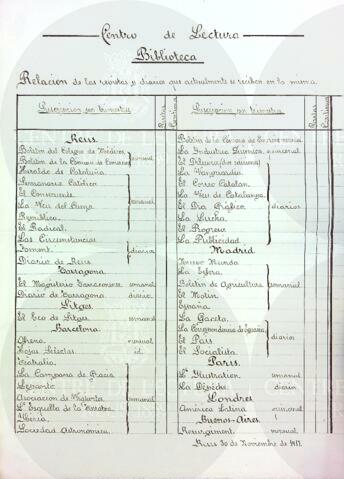 Centro de Lectura
Biblioteca
Relacion de las revistas y diarios que actualmente se reciben en la misma.
Suscripcion por trimestre
Reus.
Boletin del Colegio de Médicos
Boletin de la Comun de
semanal
Heraldo de Cataluña
Semanario Católico
El Consecuente
La Veu del Camp
semanal
República
El Radical
Las Circunstancias
Foment
diarios
Diario de Reus
Tarragona
El Magisterio Tarraconense semanal
Diario de Tarragona diario
Sitges
El Eco de Sitges semanal
Barcelona
mensual
Hojas Selectas id.
Teatralia
La Campana de Gracia
Levante
semanal
L'Esquella de la Torratxa
Iberia
Sociedad Astronómica
Suscripcion por trimestre
Boletin de la Camara de
La Industria Quimica semanal
El Diluvio (dos edicions)
La Vanguardia
El Correo Catalan
La Veu de Catalunya
El Dia Gráfico diarios
La Lucha
El Progreso
La Publicidad
Madrid
Nuevo Mundo
La Esfera
Boletin de Agricultura semanal
El Motin
España
La Gaceta
La Correspondencia de España
El Pais diarios
El Socialista
Paris
L'Illustration semanal
La Dépêche diario
Londres
América Latina
Buenos-Aires
Resurgiment mensual
Reus 30 de Noviembre de 1917